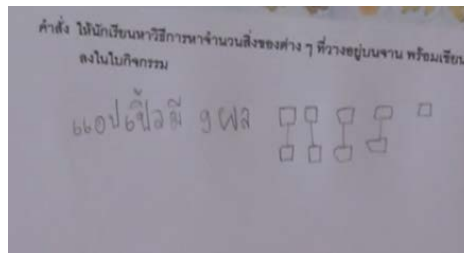 คำสั่ง ให้นักเรียนหาวิธีการหาจำนวนสิ่งของต่าง ๆ ที่วางอยู่บนจาน พร้อมเขียน
ลงในใบกิจกรรม
แอปเปิ้ลมี 9 ผล